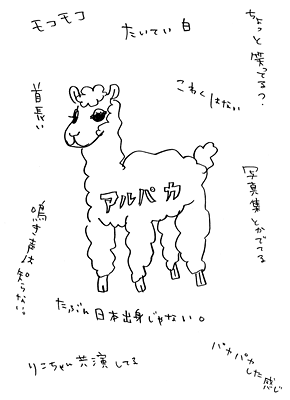 モコモコ
たいてい白
ちょっと笑ってる?
こわくはない
首長い
アルパカ
写真集とかでてる
鳴き声は知らない。
たぶん日本出身じゃない。
りこちゃん共演してる
パカパカした感じ